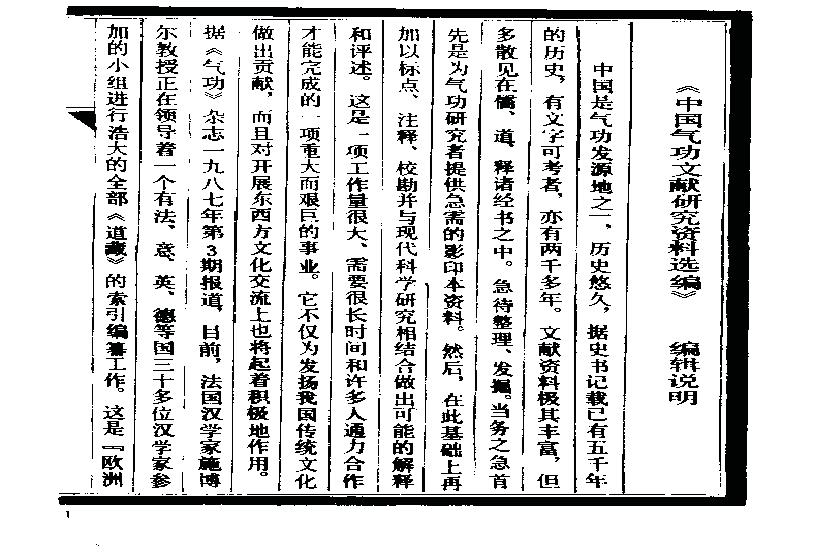 《中国气功文献研究资料选编》 编辑说明
中国是气功发源地之一，历史悠久，据史书记载已有五千年
的历史，有文字可考者，亦有两千多年。文献资料极其丰富，但
多散见在儒、道、释诸经书之中。急待整理、发掘。当务之急首
先是为气功研究者提供急需的影印本资料。然后，在此基础上再
加以标点、注释、校勘并与现代科学研究相结合做出可能的解释
和评述。这是一项工作量很大、需要很长时间和许多人通力合作
才能完成的一项重大而艰巨的事业。它不仅为发扬我国传统文化
做出贡献，而且对开展东西方文化交流上也将起着积极地作用。
据《气功》杂志一九八七年第3期报道，目前，法国汉学家施博
尔教授正在领导着一个有法、意、英、德等国三十多位汉学家参
加的小组进行浩大的全部《道藏》的索引编纂工作。这是『欧洲
1